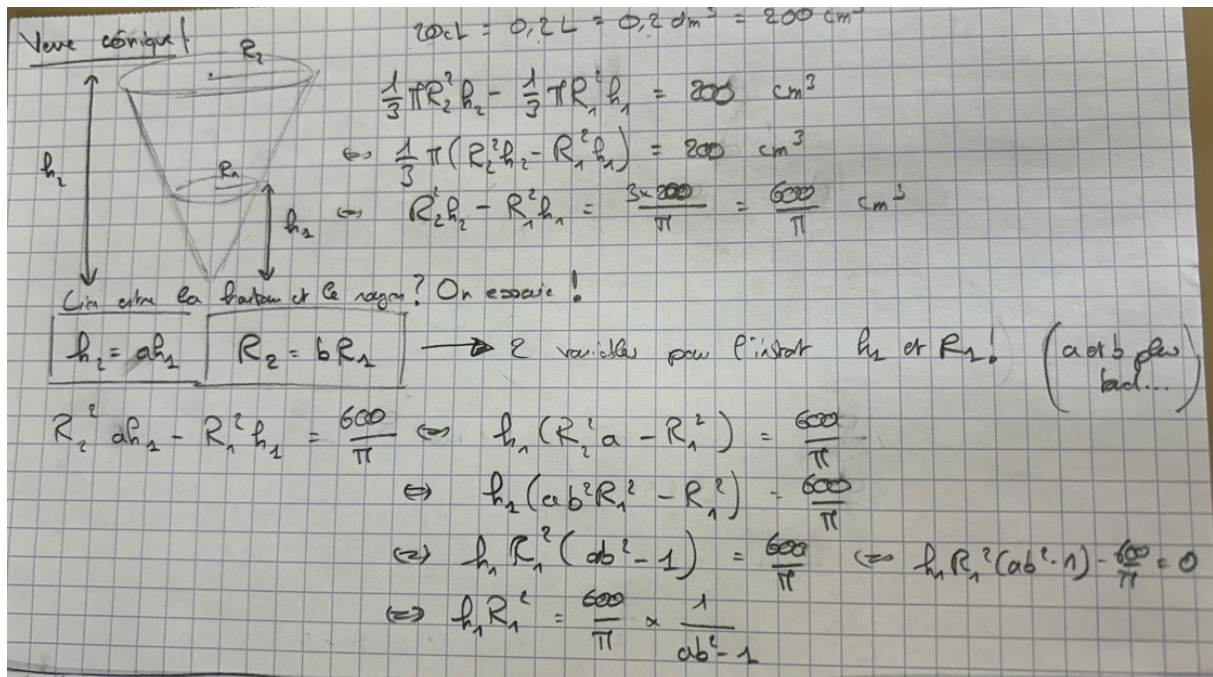 Verre cônique!
20cL = 0,2L = 0,2 dm³ = 200 cm³
R₂
1/3 πR₂²h₂ - 1/3 πR₁²h₁ = 200 cm³
h₂
R₁
⇔ 1/3 π(R₂²h₂ - R₁²h₁) = 200 cm³
h₁
⇔ R₂²h₂ - R₁²h₁ = 3×200/π = 600/π cm³
Lien entre la hauteur et le rayon? On essaie!
h₂ = ah₁ R₂ = bR₁ → 2 variables pour l'instant h₁ et R₁! (a et b plus tard...)
R₂²ah₁ - R₁²h₁ = 600/π ⇔ h₁(R₂²a - R₁²) = 600/π
⇔ h₁(ab²R₁² - R₁²) = 600/π
⇔ h₁R₁²(ab² - 1) = 600/π ⇔ h₁R₁²(ab² - 1) - 600/π = 0
⇔ h₁R₁² = 600/π × 1/(ab² - 1)